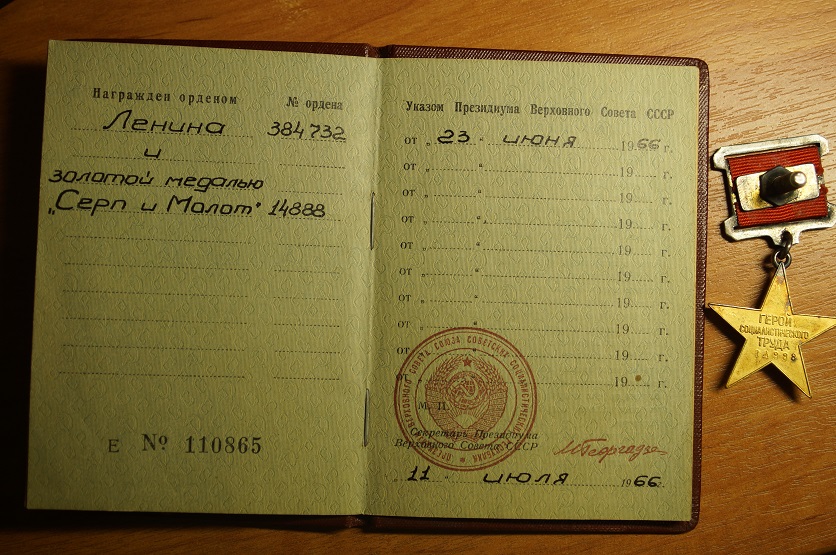 Награжден орденом № ордена
Ленина 384732
и
золотой медалью
„Серп и Молот" 14888
Е № 110865
Указом Президиума Верховного Совета СССР
от „ 23 " июня 1966 г.
от „ " 19 г.
от „ " 19 г.
от „ " 19 г.
от „ " 19 г.
от „ " 19 г.
от „ " 19 г.
от „ " 19 г.
от „ " 19 г.
от „ " 19 г.
М. П.
Секретарь Президиума
Верховного Совета СССР
МГеоргадзе
„ 11 " июля 1966 г.
ВЕРХОВНОГО СОВЕТА СОЮЗА СОВЕТСКИХ СОЦИАЛИСТИЧЕСКИХ
ГЕРОЙ
СОЦИАЛИСТИЧЕСКОГО
ТРУДА
14888